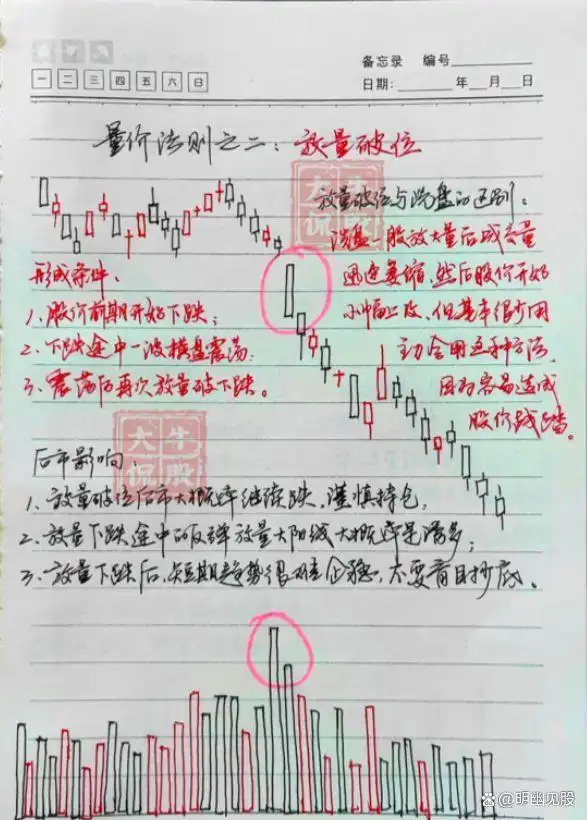 备忘录 编号
一 二 三 四 五 六 日
日期: 年 月 日
量价法则之二：放量破位
大牛
侃股
放量破位与洗盘的区别：
洗盘一般放大量后成交量
迅速萎缩，然后股价开始
小幅上攻，但基本很少用
主力会用这种方法，
因为容易造成
股价践踏。
形成条件：
1、股价前期开始下跌；
2、下跌途中一波横盘震荡；
3、震荡后再次放量破下跌。
大牛
侃股
后市影响：
1、放量破位后市大概率继续跌，谨慎持仓；
2、放量下跌途中的反弹放量大阳线大概率是诱多；
3、放量下跌后，短期趋势很难企稳，不要盲目抄底。
明幽见股